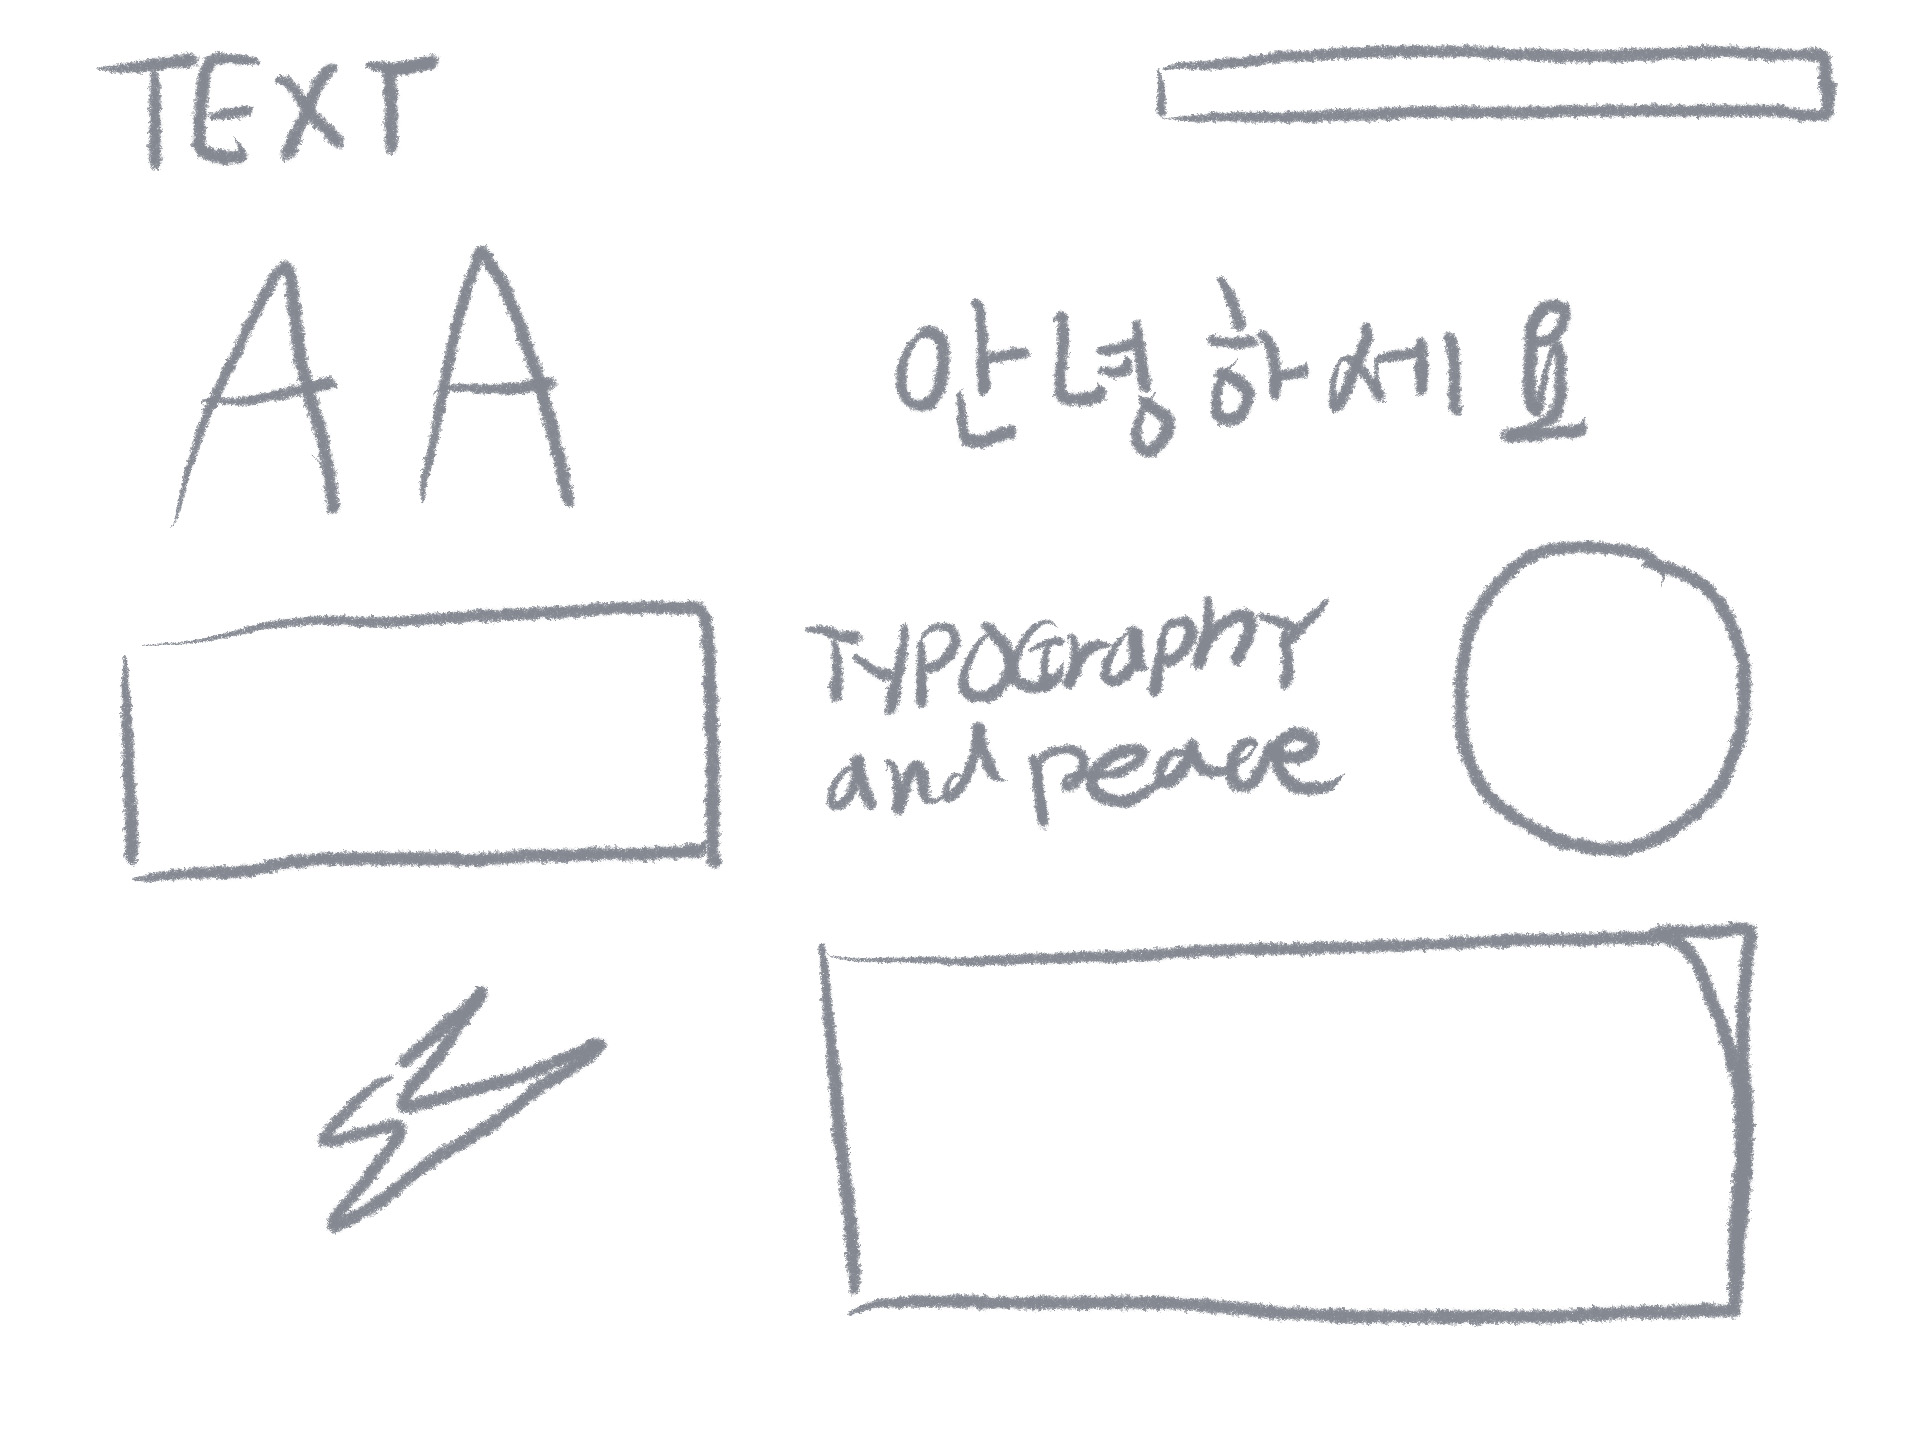 TEXT
AA
안녕하세요
Typography
and peace